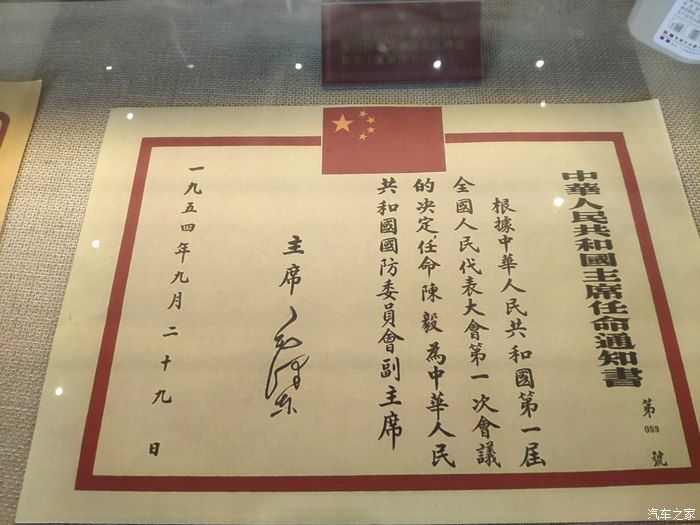 中華人民共和國主席任命通知書
第053號
根據中華人民共和國第一届
全國人民代表大會第一次會議
的决定任命陳毅為中華人民
共和國國防委員會副主席
主席
毛澤東
一九五四年九月二十九日
汽车之家